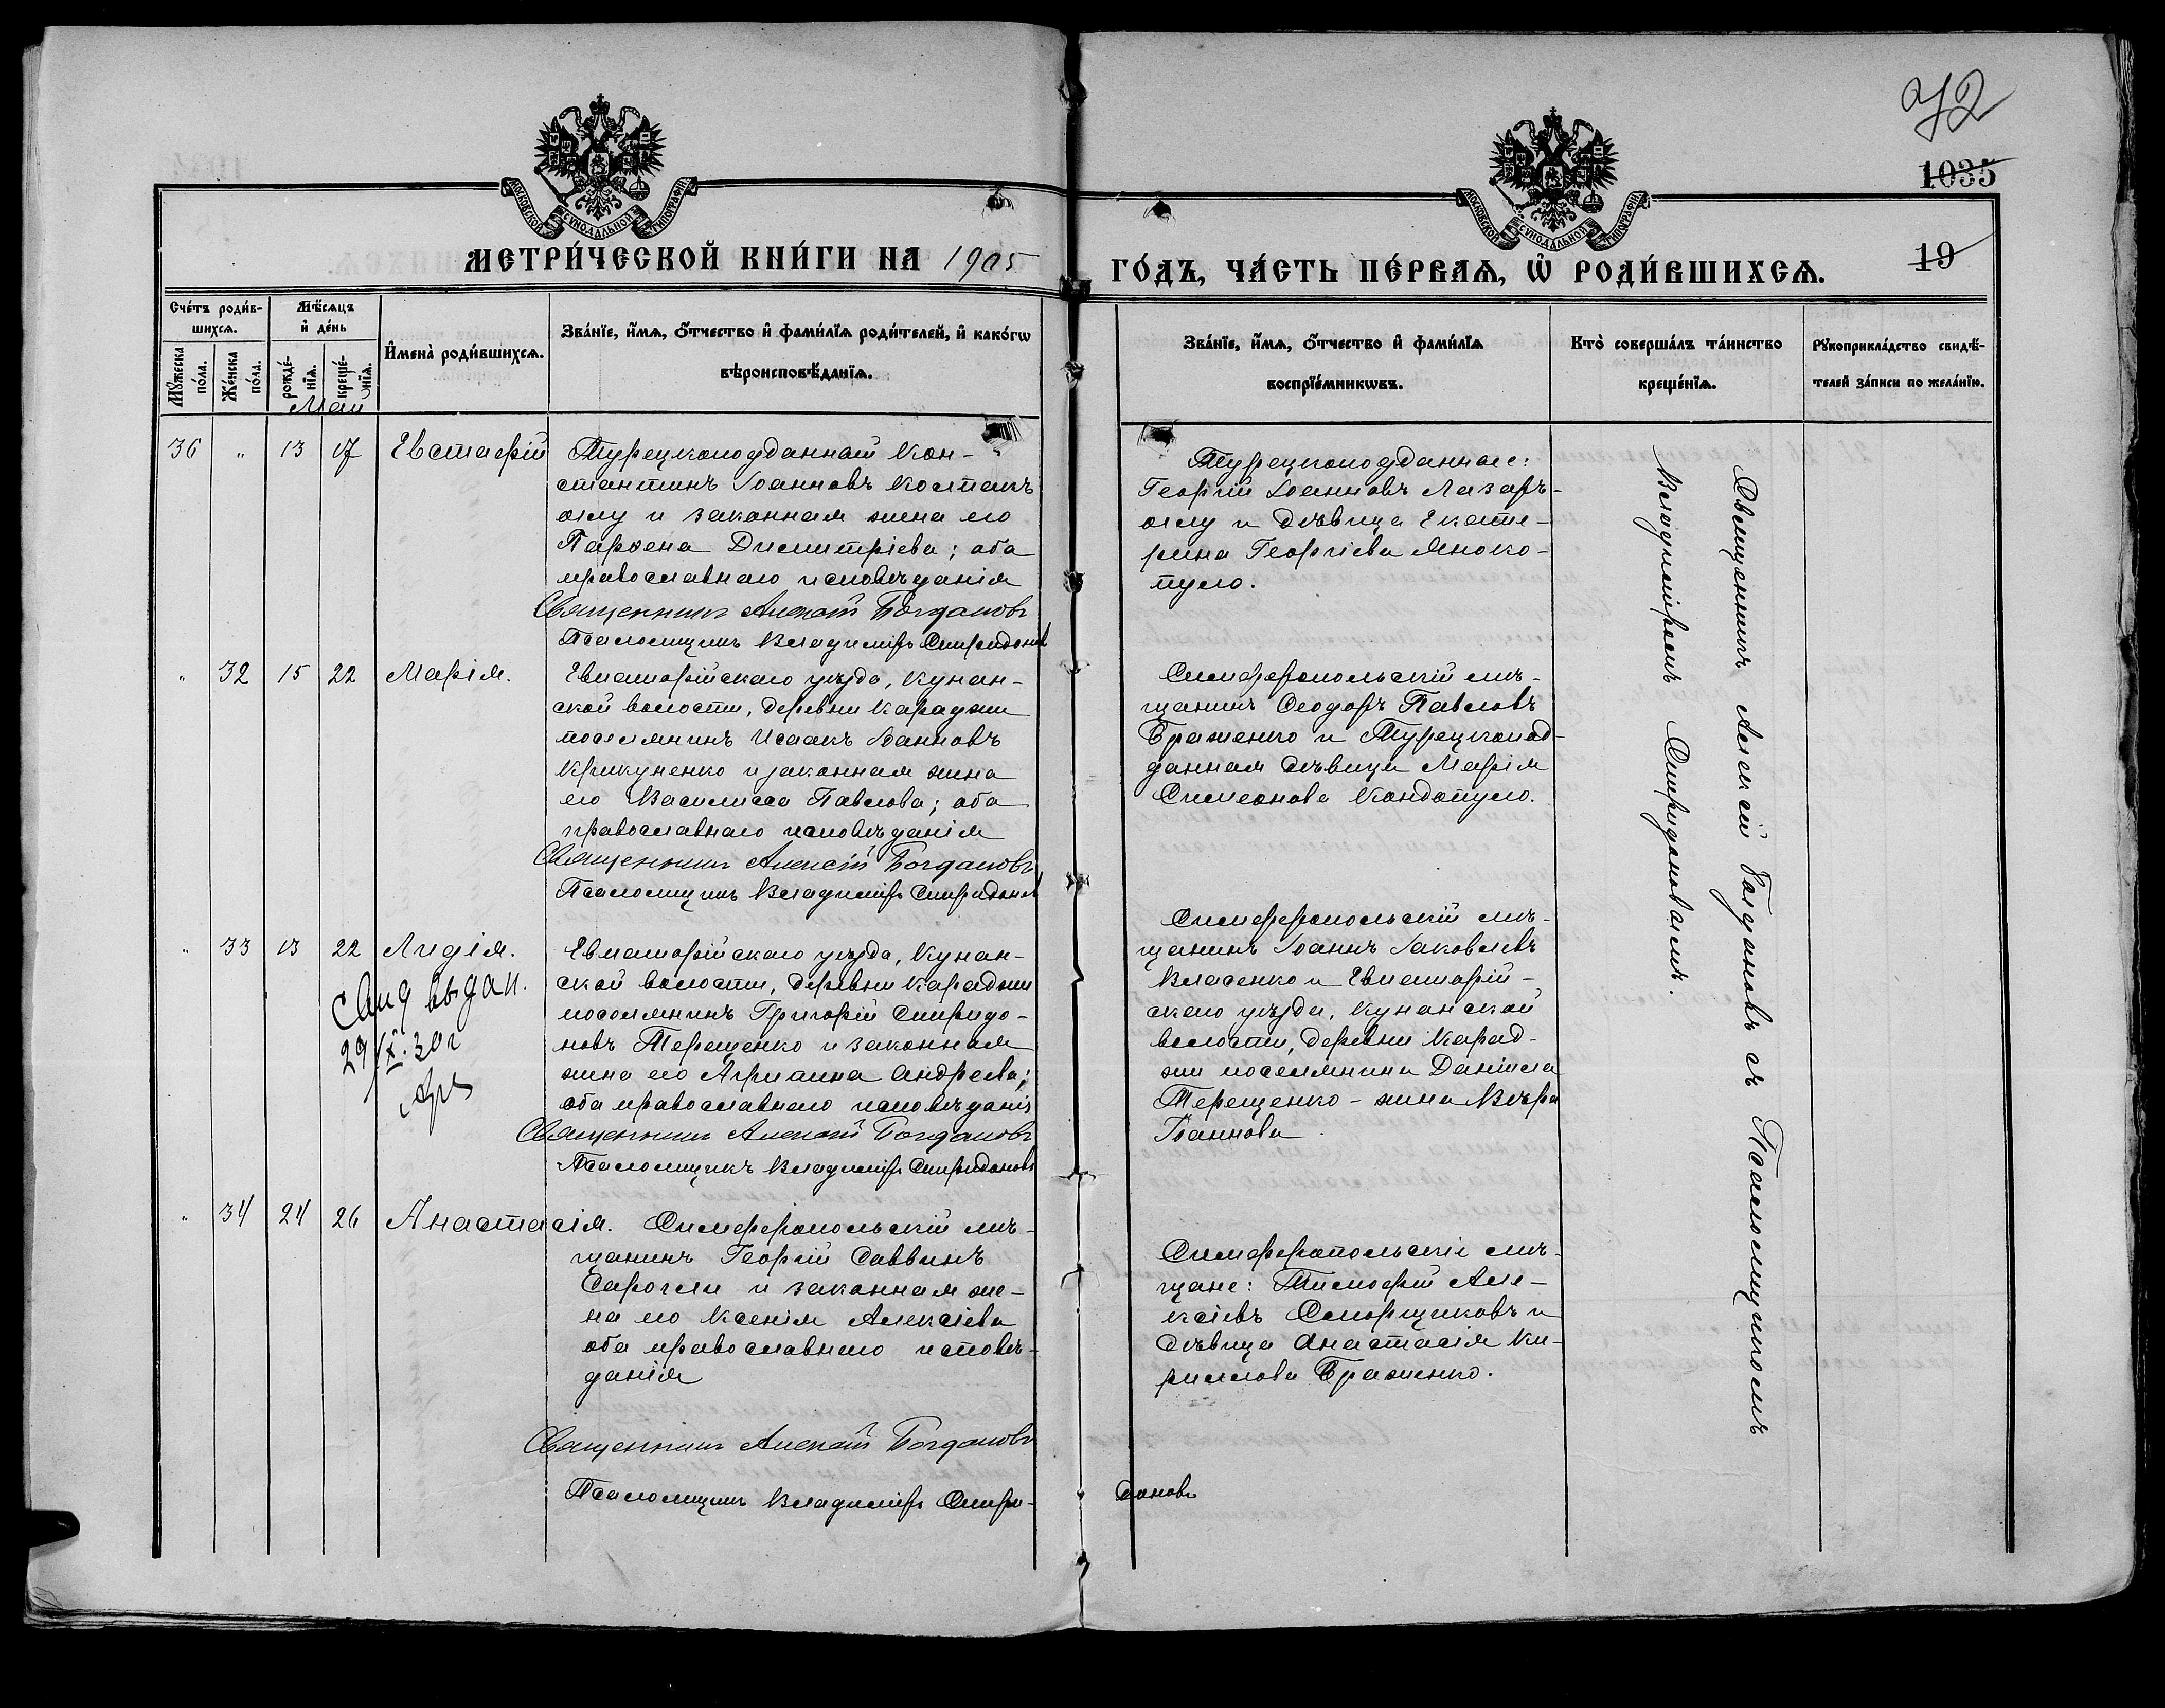 72
1035
19
МОСКОВСКОЙ СѴНОДАЛЬНОЙ ТИПОГРАФІИ
МОСКОВСКОЙ СѴНОДАЛЬНОЙ ТИПОГРАФІИ
МЕТРИ́ЧЕСКОЙ КНИ́ГИ НА 1905
ГО́ДЪ, ЧА́СТЬ ПЕ́РВАѦ, Ѡ҆ РОДИ́ВШИХСѦ.
Сче́тъ роди́в-
шихсѧ.
Мꙋ́жеска по́ла.
Же́нска по́ла.
Мѣ́сѧцъ
и҆ де́нь
рожде́-
нїѧ.
креще́-
нїѧ.
Май
И҆мена̀ роди́вшихсѧ.
Зва́нїе, и҆́мѧ, ѻ҆́тчество и҆ фами́лїѧ роди́телей, и҆ како́гѡ
вѣроисповѣ́данїѧ.
Зва́нїе, и҆́мѧ, ѻ҆́тчество и҆ фами́лїѧ
воспрїе́мникѡвъ.
Кто̀ соверша́лъ та́инство
креще́нїѧ.
Рꙋкоприкла́дство свидѣ́-
телей за́писи по жела́нїю.
36 " 13 17 Евстафій
Турецкоподданный Кон-
стантинъ Іоанновъ Колпакъ
оглу и законная жена его
Парѳена Димитріева; оба
православнаго исповѣданія
Священникъ Алексій Богдановъ
Псаломщикъ Владиміръ Спиридоновъ
Турецкоподданные:
Георгій Іоанновъ Лазарь-
оглу и дѣвица Екате-
рина Георгіева Яноко-
пуло.
" 32 15 22 Марія.
Евпаторійскаго уѣзда, Кунан-
ской волости, деревни Караджи
поселянинъ Исаакъ Іоанновъ
Крикуненко и законная жена
его Василисса Павлова; оба
православнаго исповѣданія
Священникъ Алексій Богдановъ
Псаломщикъ Владиміръ Спиридоновъ
Симферопольскій мѣ-
щанинъ Ѳеодоръ Павловъ
Браженко и Турецкопод-
данная дѣвица Марія
Симеонова Кондопуло.
" 33 13 22 Лидія.
Свид выдан.
29/IX.30г
Евпаторійскаго уѣзда, Кунан-
ской волости, деревни Караджи
поселянинъ Григорій Спиридо-
новъ Терещенко и законная
жена его Агриппина Андреева;
оба православнаго исповѣданія
Священникъ Алексій Богдановъ
Псаломщикъ Владиміръ Спиридоновъ
Симферопольскій мѣ-
щанинъ Іоаннъ Іаковлевъ
Власенко и Евпаторій-
скаго уѣзда, Кунанской
волости, деревни Карад-
жи поселянина Даніила
Терещенко - жена Вѣра
Іоаннова
" 34 24 26 Анастасія.
Симферопольскій мѣ-
щанинъ Георгій Саввинъ
Сарогли и законная же-
на его Ксенія Алексіева
оба православнаго исповѣ-
данія
Священникъ Алексій Богдановъ
Псаломщикъ Владиміръ Спири-
доновъ
Симферопольскіе мѣ-
щане: Тимоѳей Але-
ксіевъ Сморщиковъ и
дѣвица Анастасія Ки-
риллова Браженко.
Священникъ Алексій Богдановъ съ Псаломщикомъ
Владиміромъ Спиридоновымъ.